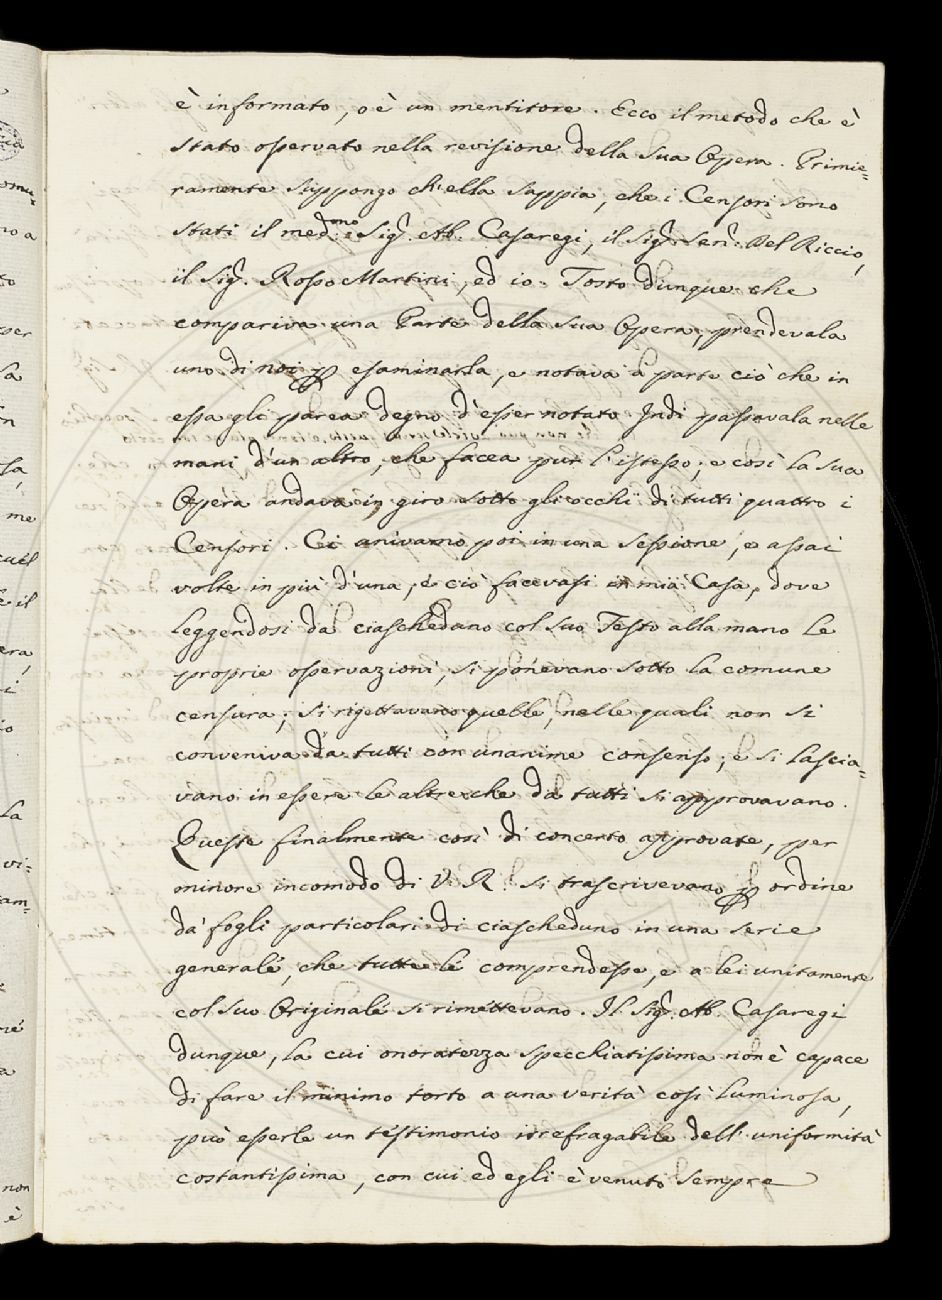 è informato, o è un mentitore. Ecco il metodo che è
stato osservato nella revisione della sua Opera. Primie=
ramente suppongo ch'ella sappia, che i Censori sono
stati il med.mo Sig.r Ab. Casaregi, il Sig.r Ser. Del Riccio,
il Sig.r Rosso Martini, ed io. Tosto dunque che
compariva una Parte della sua Opera, prendevala
uno di noi p esaminarla, e notava a parte ciò che in
essa gli parea degno d'esser notato Indi passavala nelle
mani d'un altro, che facea pur l'istesso; e così la sua
Opera andava in giro sotto gli occhi di tutti quattro i
Censori. Ci univamo poi in una sessione, e assai
volte in più d'una, e ciò facevasi in mia Casa, dove
leggendosi da ciascheduno col suo Testo alla mano le
proprie osservazioni, si ponevano sotto la comune
censura; si rigettavano quelle, nelle quali non si
conveniva da tutti con unanime consenso; e si lascia=
vano in essere le altre che da tutti si approvavano.
Queste finalmente così di concerto approvate, per
minore incomodo di V. R. si trascrivevano p ordine
da' fogli particolari di ciascheduno in una serie
generale, che tutte le comprendesse, e a lei unitamente
col suo Originale si rimettevano. Il Sig.r Ab. Casaregi
dunque, la cui onoratezza specchiatissima non è capace
di fare il minimo torto a una verità così luminosa,
può esserle un testimonio irrefragabile dell'uniformità
costantissima, con cui ed egli è venuto sempre